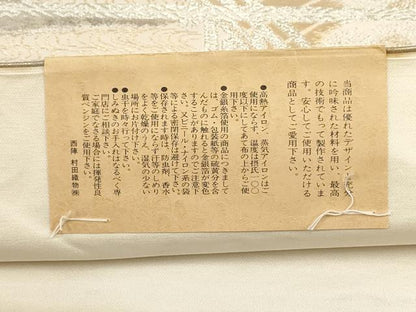 当商品は優れたデザイン、充分
に吟味された材料を用い、最高
の技術でもって製作されていま
す。安心してご使用いただける
商品としてご愛用下さい。
●高熱アイロン、蒸気アイロンはご
使用にならず、温度は摂氏一〇〇
度以下にしてあて布の上からご使
用下さい。
●金銀糸箔使用の商品につきまして
は、ゴム・包装紙等の硫黄分を含
んだものに触れると金銀箔が変色
することがありますのでご注意下
さい。又ビニール・ナイロン系の袋
等による密閉保存は避けて下さい。
●保存されます時は、防虫剤、香水
等をご使用にならず汗等のしめり
をよく乾燥のうえ、湿気の少ない
場所にお片付け下さい。
●虫干を時々行って下さい。
●しみぬきのお手入れはなるべく専
門店にご相談下さい。
ご家庭でなさる場合には揮発性良
質ベンジンをご使用下さい。
西陣 村田織物㈱